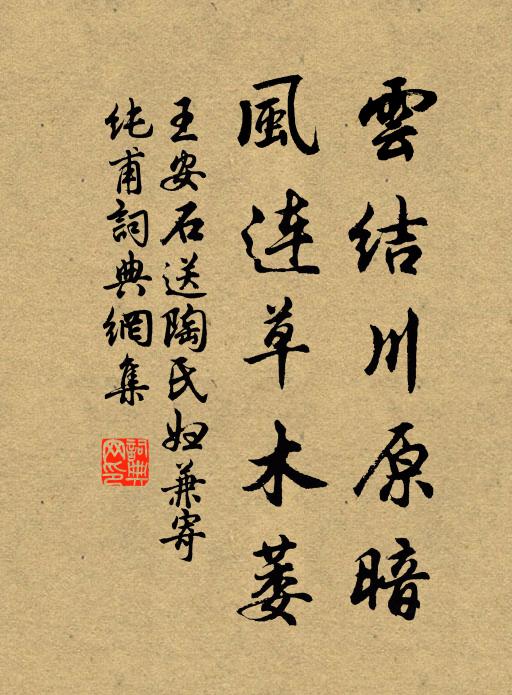 雲结川原暗
風连草木萎
王安石送陶氏妇兼寄
纯甫詞典網集
詞典网印